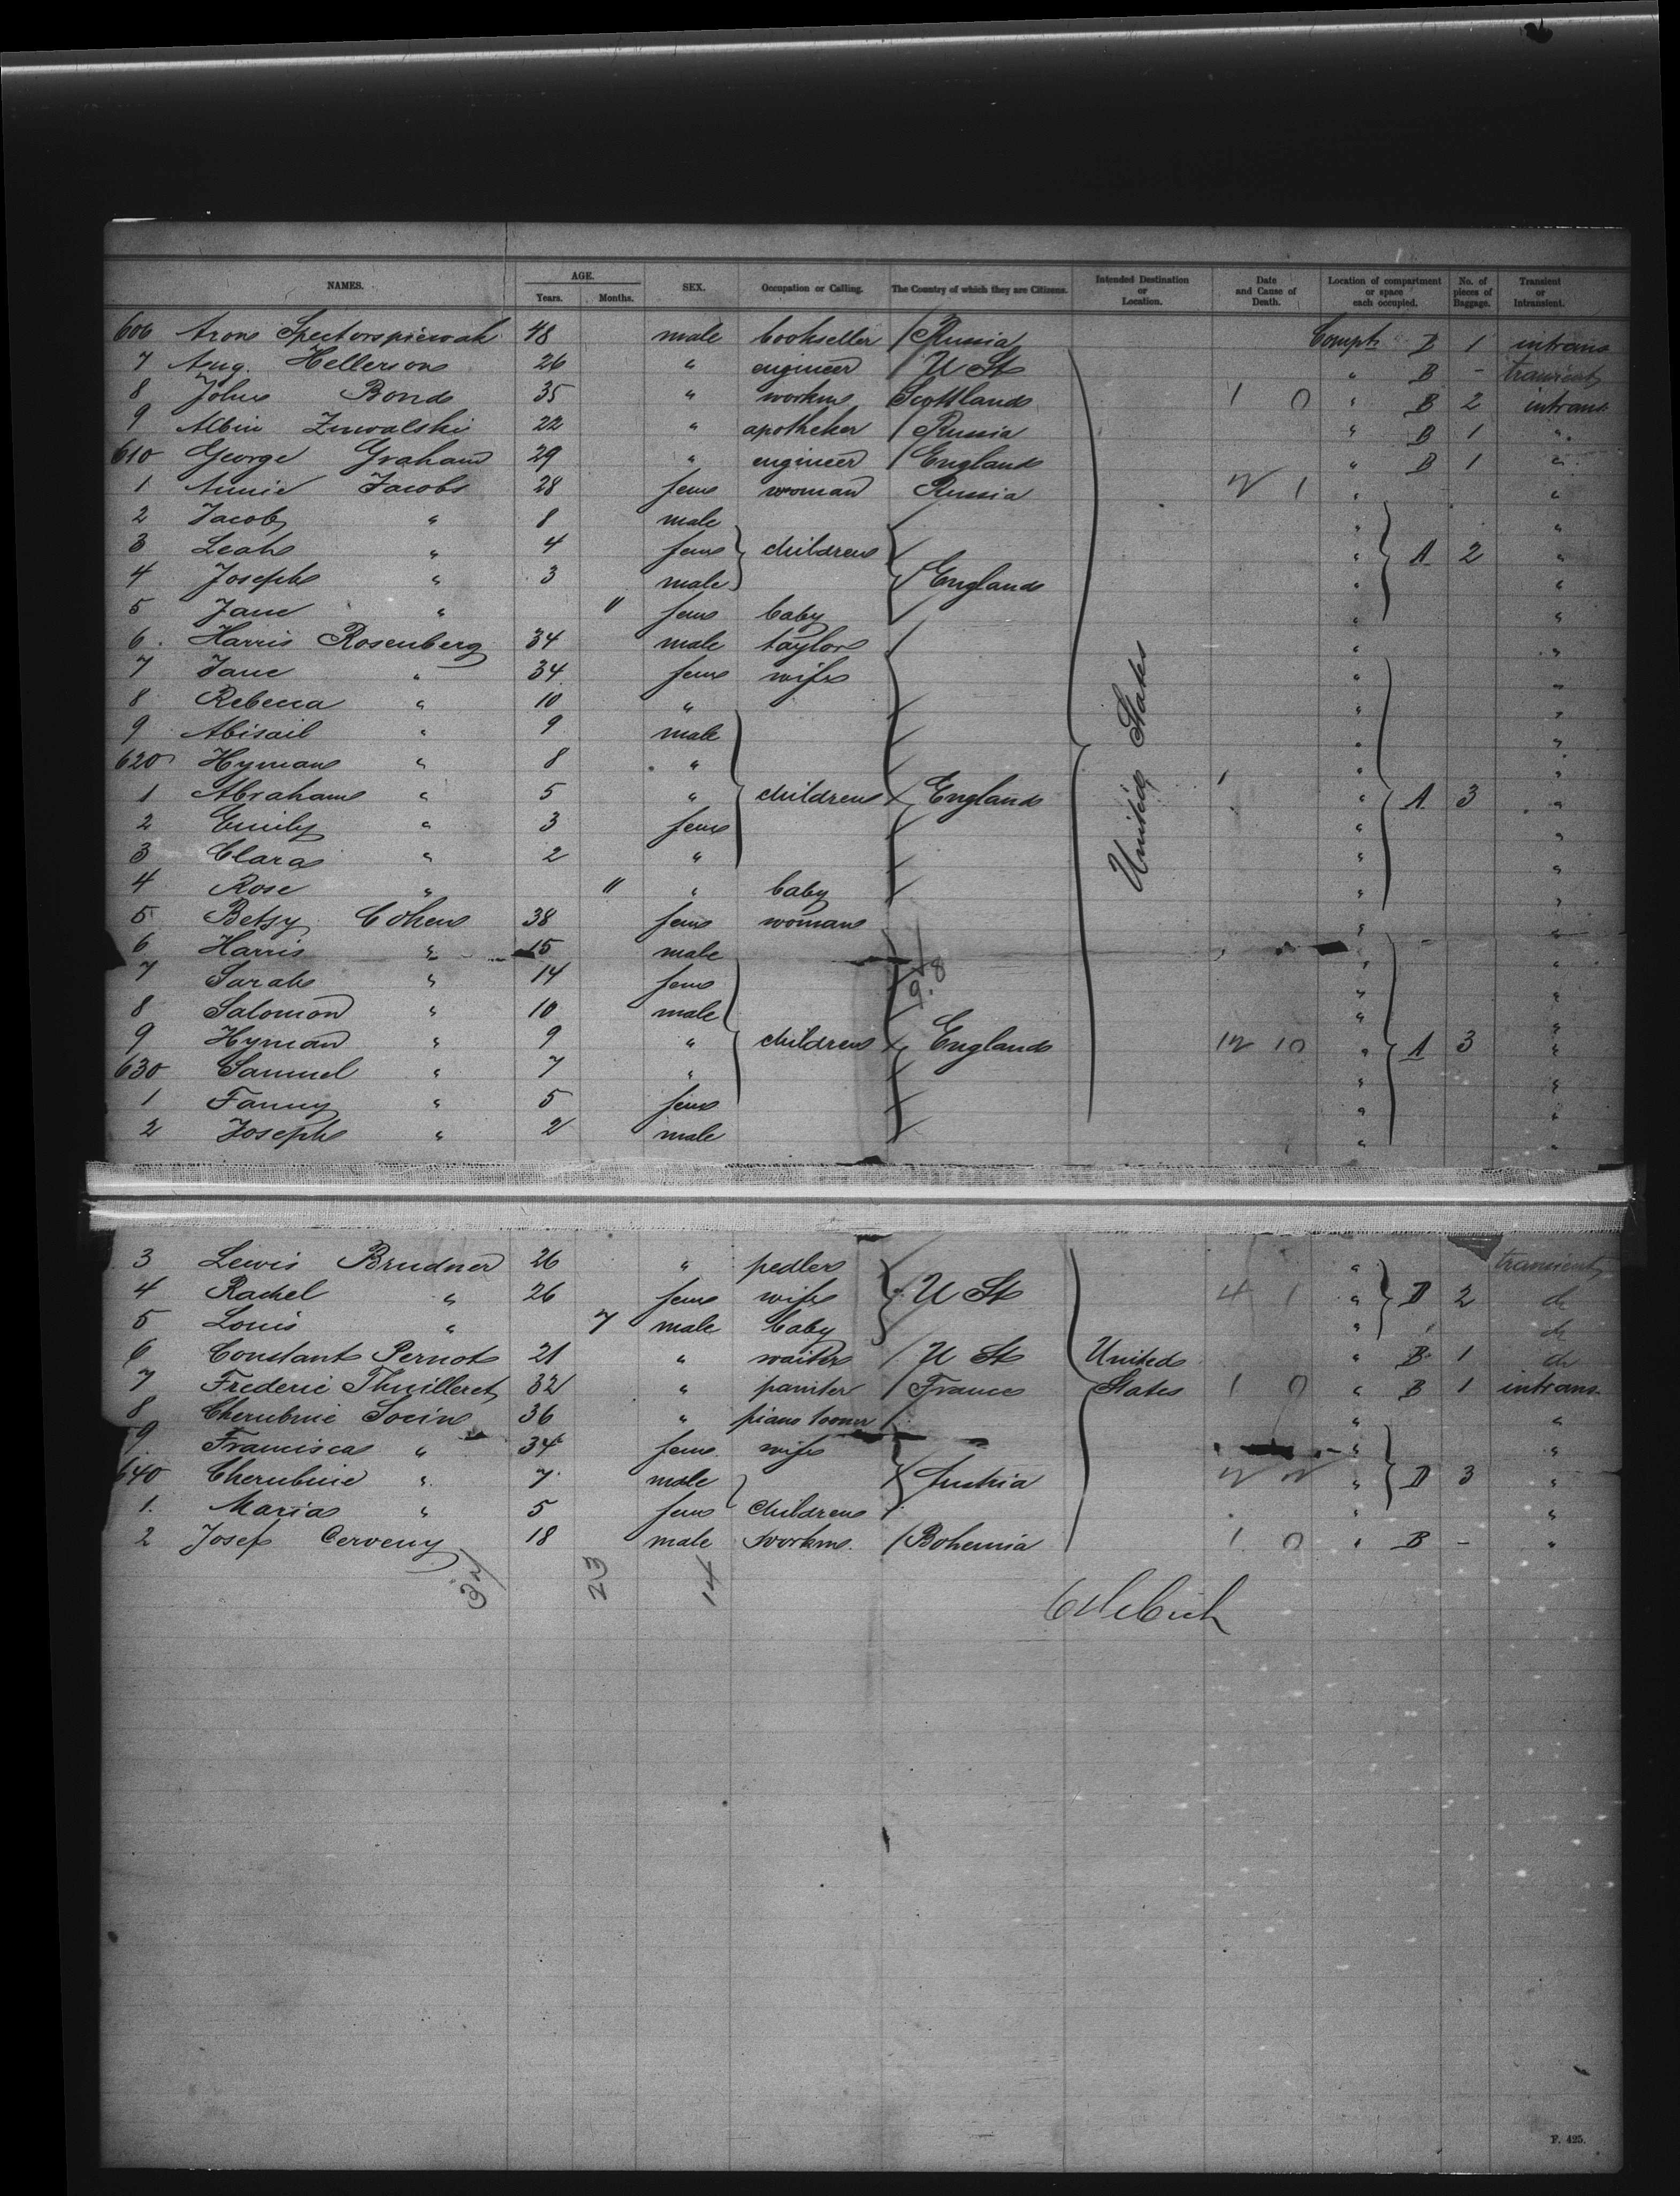 NAMES. AGE. Years. Months. SEX. Occupation or Calling. The Country of which they are Citizens. Intended Destination or Location. Date and Cause of Death. Location of compartment or space each occupied. No. of pieces of Baggage. Transient or Intransient.
606 Arone Spectorspiewak 48 male bookseller / Russia Compt. D 1 intrans
7 Aug. Hellersone 26 " engineer / U St " B - transient
8 Johne Bonde 35 " workme Scottlande 1 0 " B 2 intrans
9 Albin Zuwalski 22 " apotheker / Russia " B 1 "
610 George Graham 29 " engineer / England " B 1 "
1 Annie Jacobs 28 fem woman Russia 2 1 " "
2 Jacob " 8 male " "
3 Leah " 4 fem children " A 2 "
4 Joseph " 3 male England " "
5 Jane " 11 fem baby " "
6 Harris Rosenberg 34 male taylor " "
7 Jane " 34 fem wife " "
8 Rebecca " 10 " " "
9 Abisail " 9 male " "
620 Hyman " 8 " " "
1 Abraham " 5 " children England " A 3 "
2 Emily " 3 fem " "
3 Clara " 2 " " "
4 Rose " 11 " baby " "
5 Betsy Cohen 38 fem woman " "
6 Harris " 15 male " "
7 Sarah " 14 fem " "
8 Salomon " 10 male " "
9 Hyman " 9 " children England 12 10 " A 3 "
630 Samuel " 7 " " "
1 Fanny " 5 fem " "
2 Joseph " 2 male " "
United States
9.8
3 Lewis Brudner 26 " pedler " transient
4 Rachel " 26 fem wife U St 4 1 " D 2 do
5 Louis " 7 male baby " do
6 Constant Pernot 21 " waiter / U St United " B 1 do
7 Frederic Thuilleret 32 " painter / France States 1 0 " B 1 intrans
8 Cherubine Socin 36 " piano tooner / " "
9 Francisca " 34 fem wife " "
640 Cherubine " 7 male Austria 2 2 " D 3 "
1 Maria " 5 fem children " "
2 Josef Cerveny 18 male workme. / Bohemia 1 0 " B - "
23 14
F. 425.